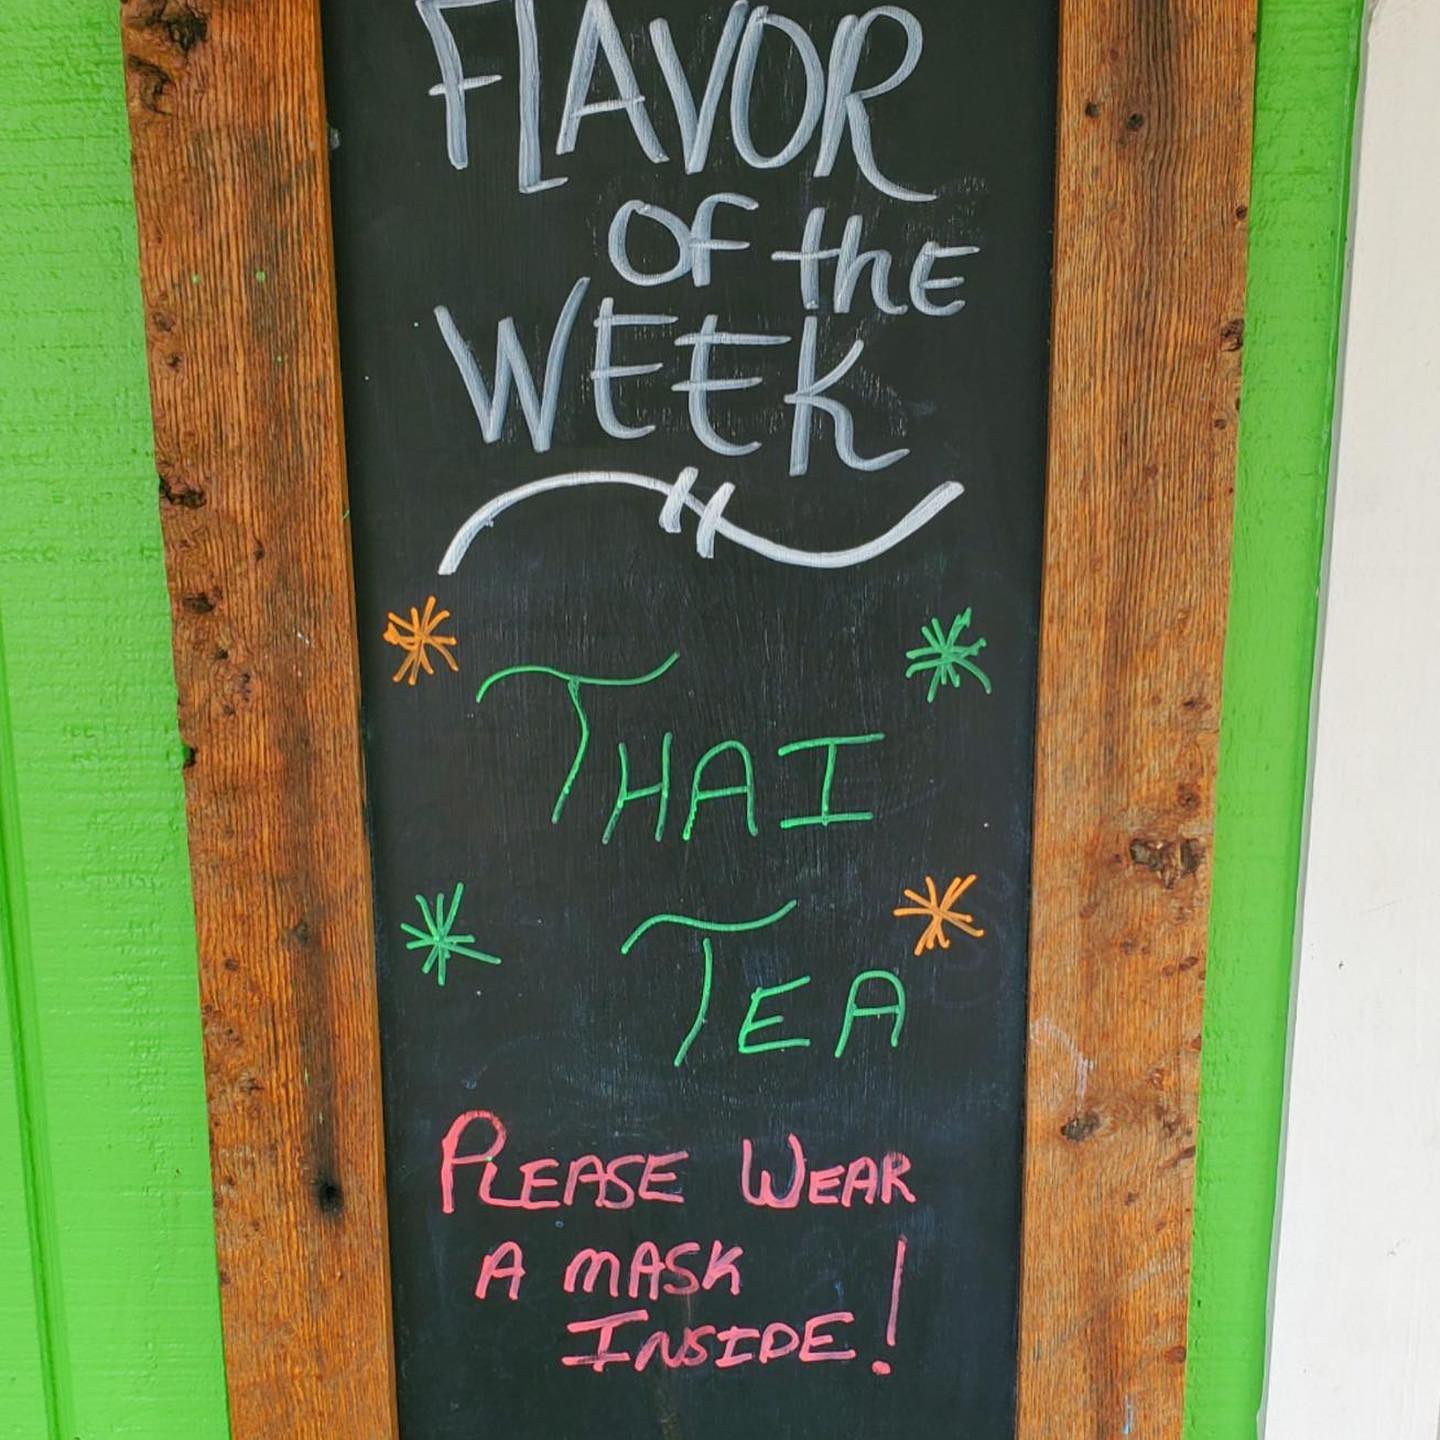 FLAVOR
OF the
WEEK
THAI
TEA
PLEASE WEAR
A MASK
INSIDE!